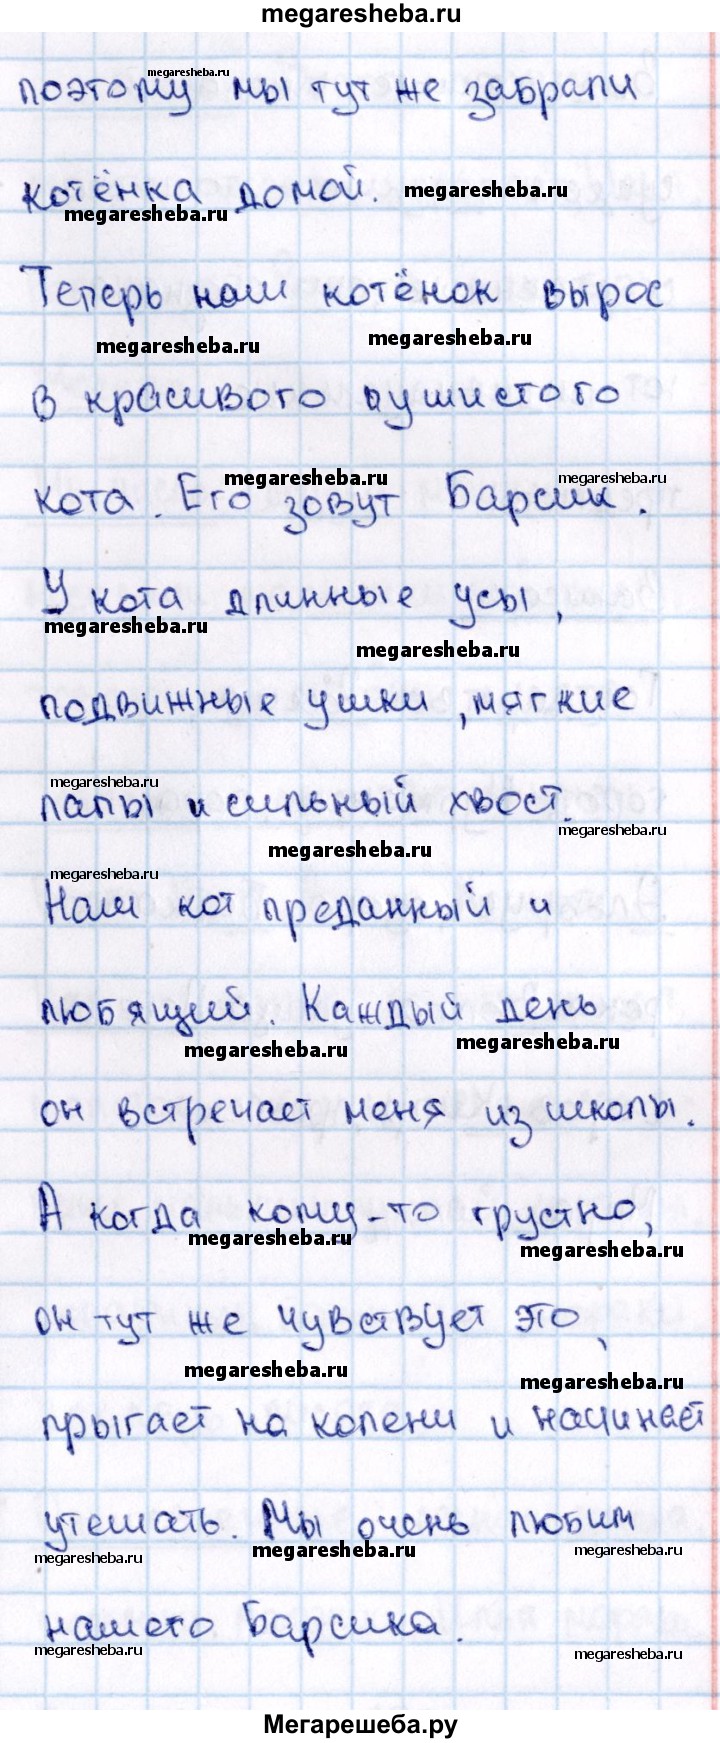 megaresheba.ru
megaresheba.ru
поэтому мы тут же забрали
котёнка домой.
megaresheba.ru
megaresheba.ru
Теперь наш котёнок вырос
megaresheba.ru
megaresheba.ru
в красивого пушистого
megaresheba.ru
megaresheba.ru
кота. Его зовут Барсик.
У кота длинные усы,
megaresheba.ru
megaresheba.ru
подвижные ушки, мягкие
megaresheba.ru
лапы и сильный хвост.
megaresheba.ru
megaresheba.ru
megaresheba.ru
Наш кот преданный и
любящий. Каждый день
megaresheba.ru
megaresheba.ru
он встречает меня из школы.
А когда кому-то грустно,
megaresheba.ru
megaresheba.ru
он тут же чувствует это,
megaresheba.ru
megaresheba.ru
прыгает на колени и начинает
утешать. Мы очень любим
megaresheba.ru
megaresheba.ru
megaresheba.ru
нашего Барсика.
megaresheba.ru
megaresheba.ru
Мегарешеба.ру